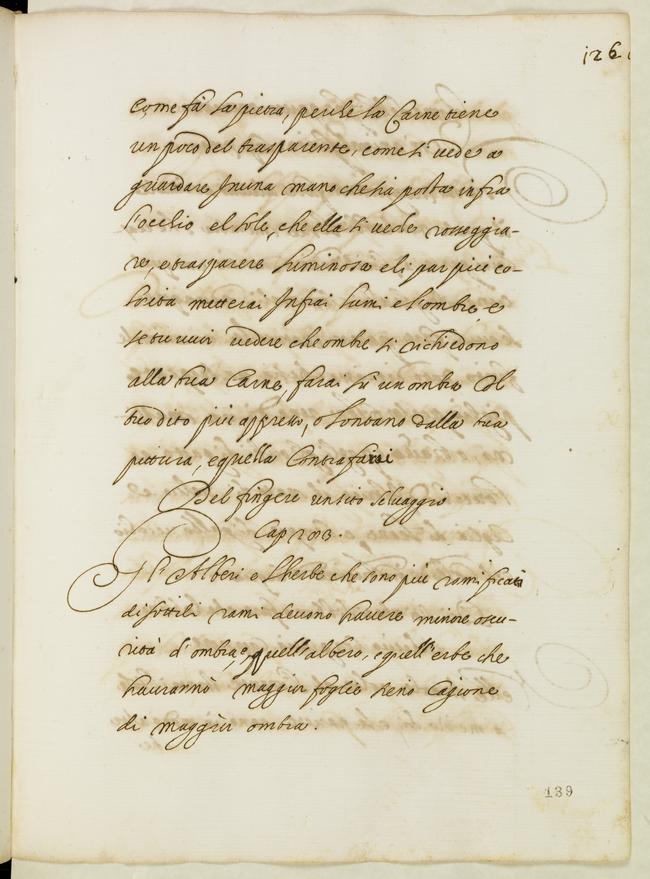 126
Come fà la pietra, perche la Carne tiene
un poco del trasparente, come si vede a
guardare Inuna mano che sia posta infra
l'occhio el sole, che ella si vede rosseggia-
re, e trasparere luminosa e li par piu co-
lorita metterai Infrai lumi e l'ombre, e
se tu vuoi vedere che ombre si richiedono
alla tua Carne, farai sù un ombra Col
tuo dito più appresso, o lontano dalla tua
pittura, e quella Contrafarai
Del fingere un sito selvaggio
Cap 203.
Gl'Alberi e l'herbe che sono più ramificati
di sottili rami devono havere minore oscu-
rità d'ombra, e quell'albero, e quell'erbe che
hauranno maggior foglie seno Cagione
di maggior ombra.
139